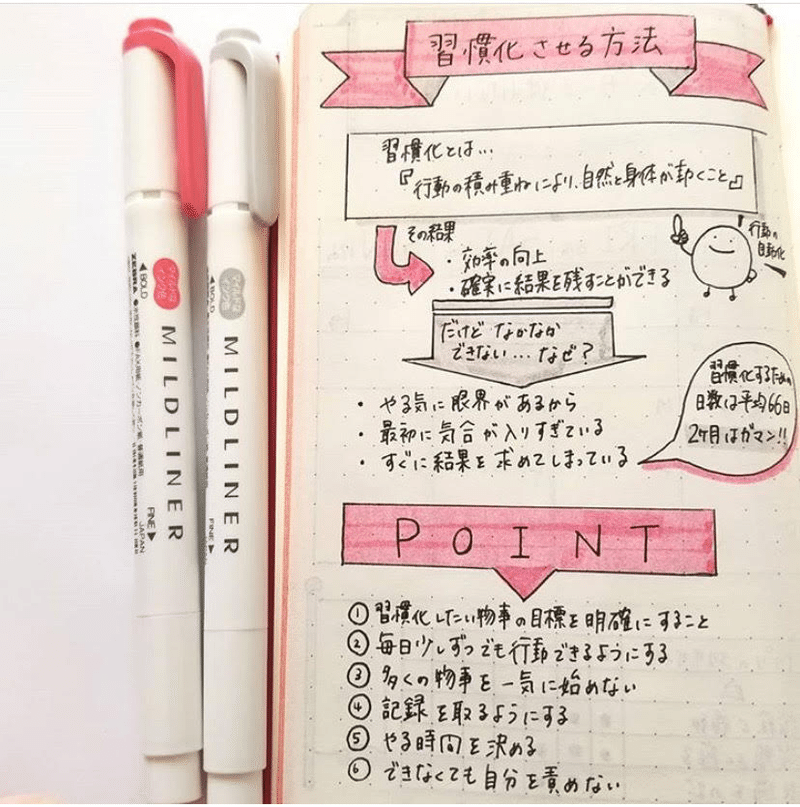 習慣化させる方法
習慣化とは…
『行動の積み重ねにより、自然と身体が動くこと』
その結果
・効率の向上
・確実に結果を残すことができる
行動の
自動化
だけど なかなか
できない…なぜ?
・やる気に限界があるから
・最初に気合が入りすぎている
・すぐに結果を求めてしまっている
習慣化するための
日数は平均66日
2ヶ月はガマン!!
POINT
① 習慣化したい物事の目標を明確にすること
② 毎日少しずつでも行動できるようにする
③ 多くの物事を一気に始めない
④ 記録を取るようにする
⑤ やる時間を決める
⑥ できなくても自分を責めない
◀BOLD
ZEBRA
マイルドな
インク色
MILDLINER
FINE▶
JAPAN
◀BOLD
マイルドな
インク色
MILDLINER
FINE▶